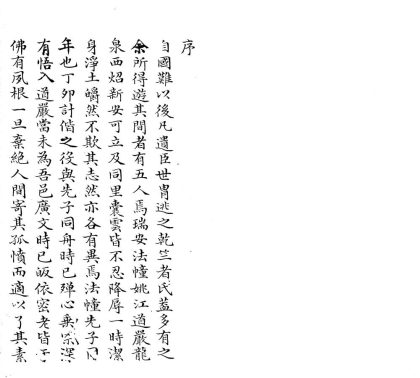 序
自國難以後凡遺臣世胄逃之乾竺者氏蓋多有之
余所得遊其間者有五人焉瑞安法幢姚江道嚴龍
泉西炤新安可立及同里囊雲皆不忍降辱一時潔
身淨土皭然不欺其志然亦各有異焉法幢先子同
年也丁卯計偕之役與先子同舟時已殫心乗深
有悟入道嚴當未為吾邑廣文時已皈依密老皆于
佛有夙根一旦棄絕人間寄其孤憤而適以了其素